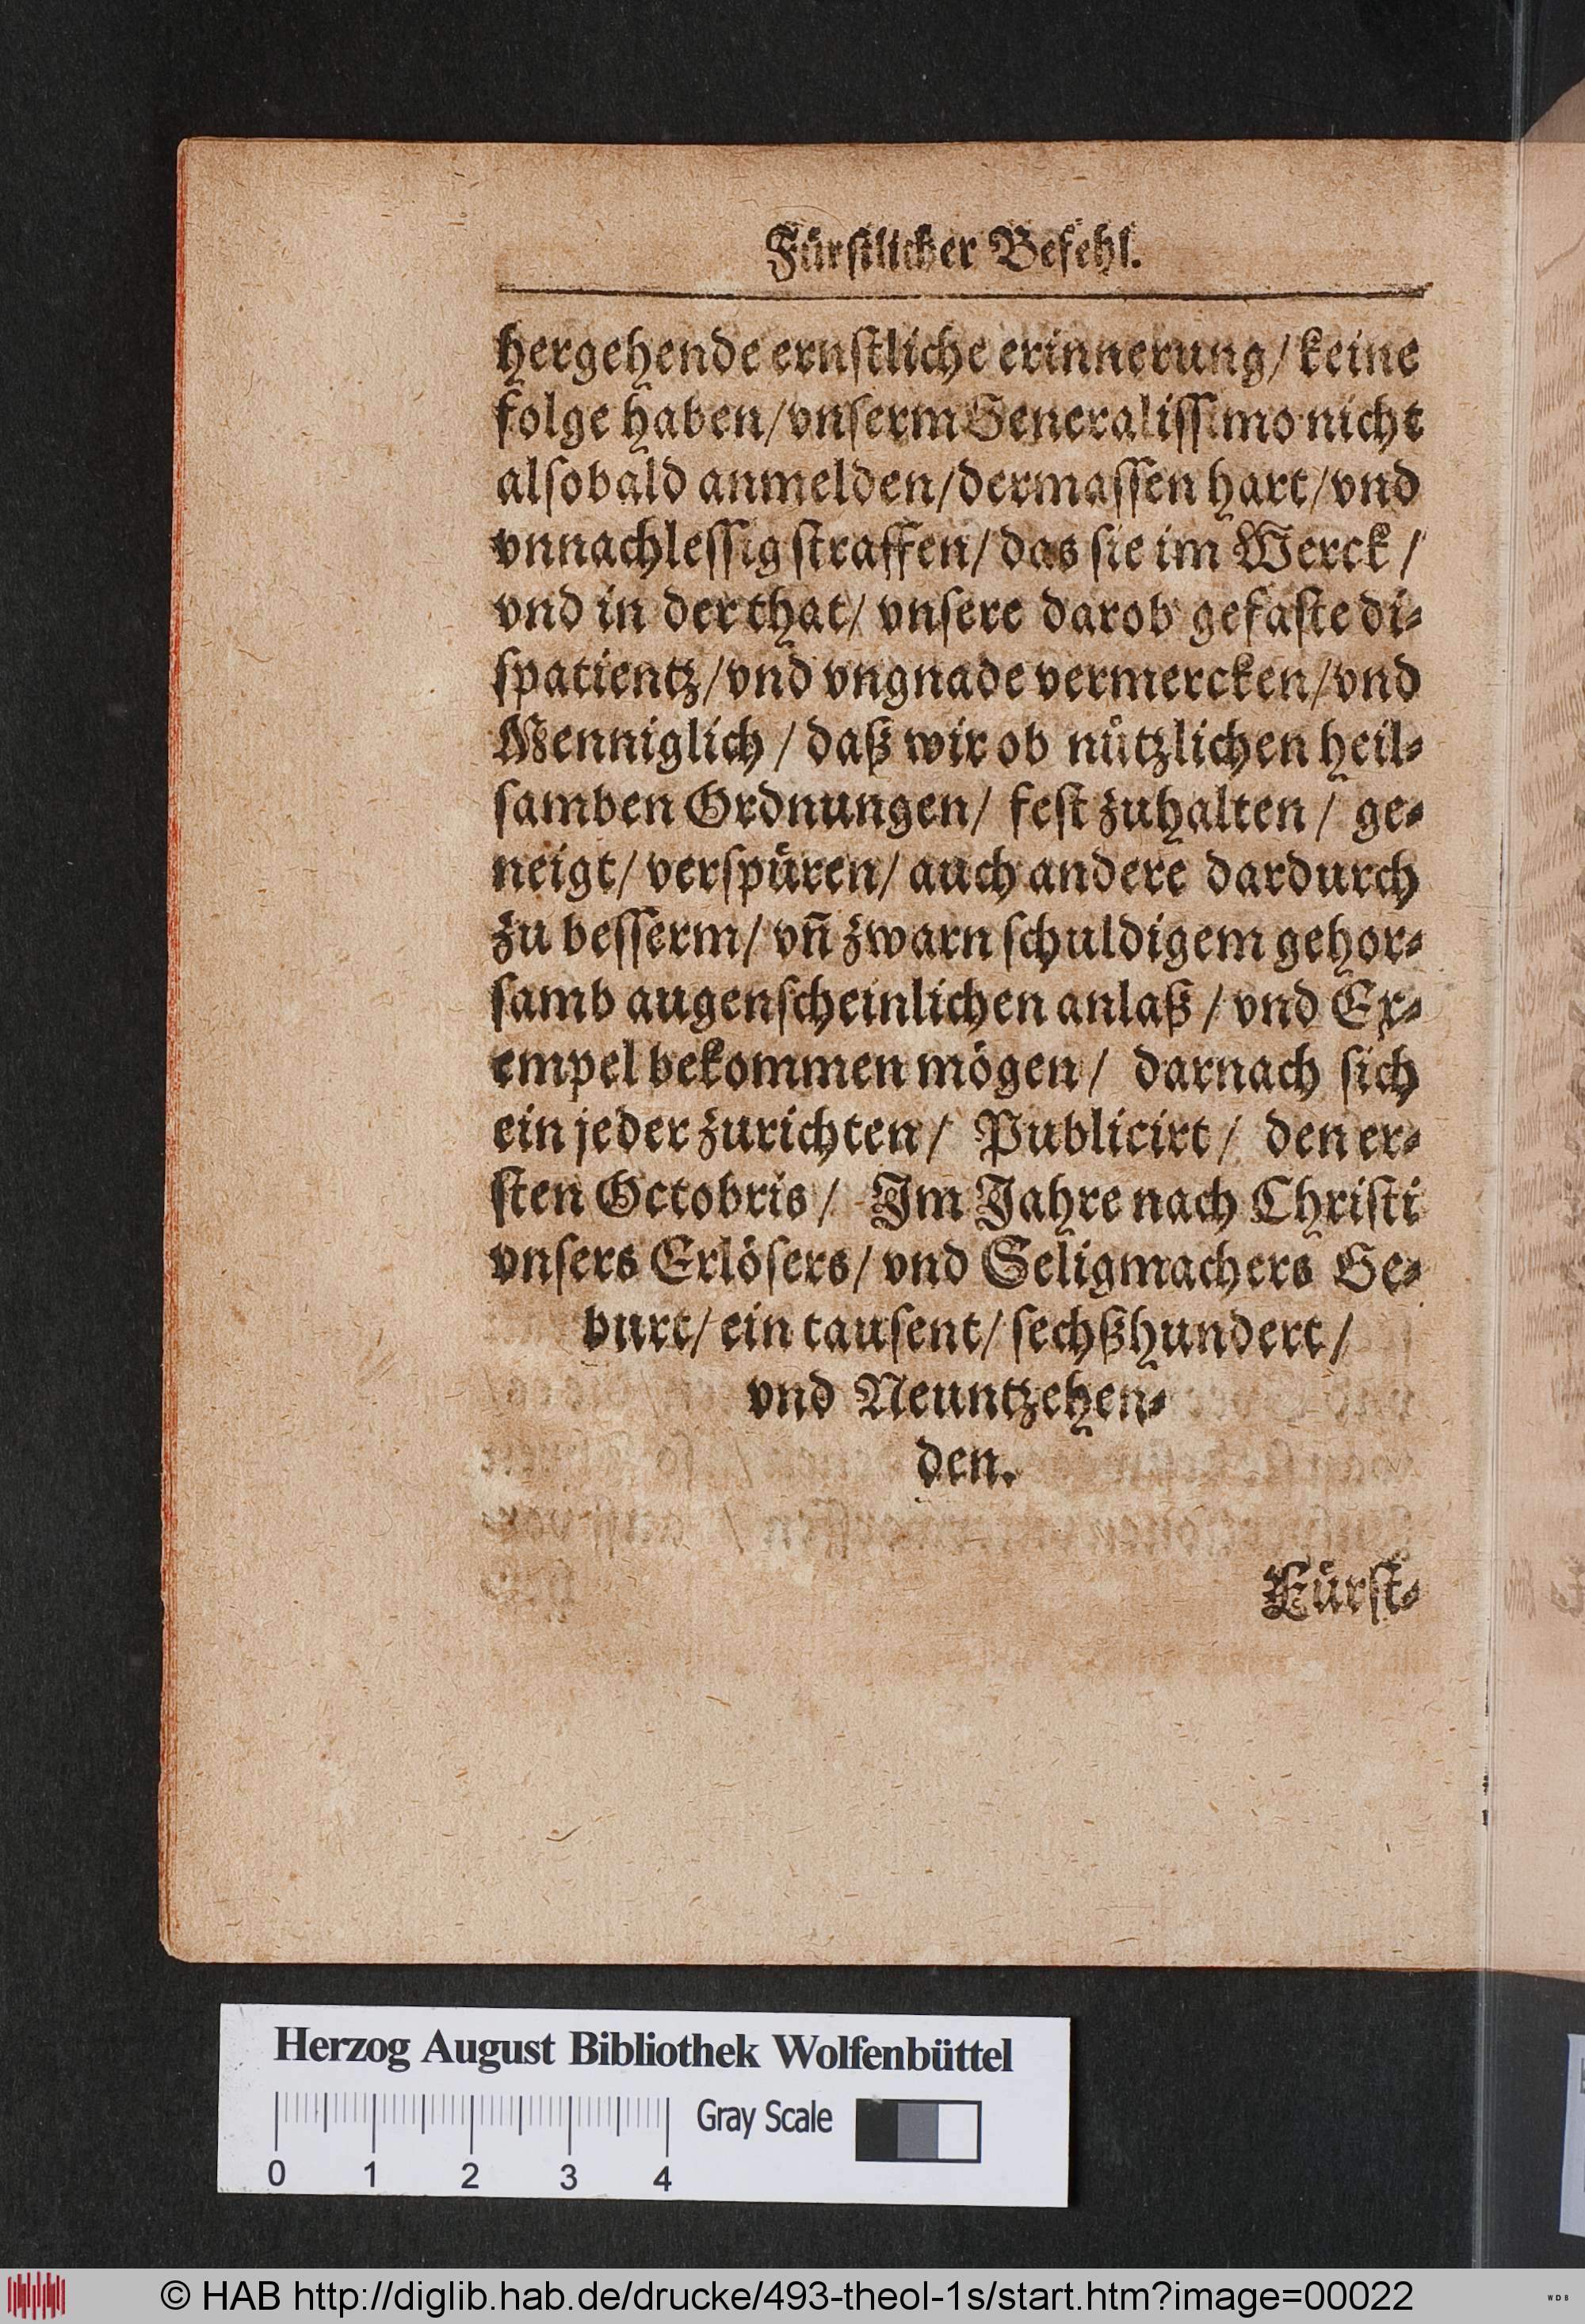 Fürstlicher Befehl.
hergehende ernstliche erinnerung/ keine
folge haben/ vnserm Generalissimo nicht
alsobald anmelden/ dermassen hart/ vnd
vnnachlessig straffen/ das sie im Werck /
vnd in der that/ vnsere darob gefaste di-
spatientz/ vnd vngnade vermercken/ vnd
Menniglich / daß wir ob nützlichen heil-
samben Ordnungen/ fest zuhalten / ge-
neigt/ verspüren/ auch andere dardurch
zu besserm/ vn̄ zwarn schuldigem gehor-
samb augenscheinlichen anlaß / vnd Ex-
empel bekommen mögen/ darnach sich
ein jeder zurichten/ Publicirt/ den er-
sten Octobris/ Im Jahre nach Christi
vnsers Erlösers/ vnd Seligmachers Ge-
burt/ ein tausent/ sechßhundert/
vnd Neuntzehen-
den.
Fürst-
Herzog August Bibliothek Wolfenbüttel
Gray Scale
0 1 2 3 4
© HAB http://diglib.hab.de/drucke/493-theol-1s/start.htm?image=00022
WDB